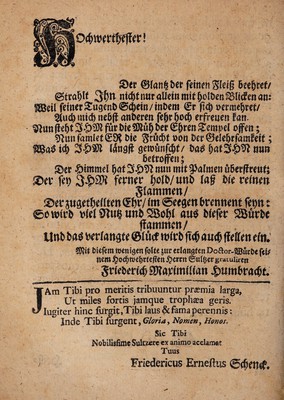 Hochwerthester!
Der Glantz der seinen Fleiß beehret/
Strahlt Jhn nicht nur allein mit holden Blicken an:
Weil seiner Tugend Schein/ indem Er sich vermehret/
Auch mich nebst anderen sehr hoch erfreuen kan.
Nun steht JHM für die Müh der Ehren Tempel offen;
Nun samlet ER die Frücht von der Gelehrsamkeit;
Was ich JHM längst gewünscht/ das hat JHN nun
betroffen;
Der Himmel hat JHN nun mit Palmen überstreut;
Der sey JHM ferner hold/ und laß die reinen
Flammen/
Der zugetheilten Ehr/ im Seegen brennent seyn:
So wird viel Nutz und Wohl aus dieser Würde
stammen/
Und das verlangte Glück wird sich auch stellen ein.
Mit diesem wenigen solte zur erlangten Doctor-Würde sei-
nem Hochwerthesten Herrn Sultzer gratuliren
Friederich Maximilian Humbracht.
JAm Tibi pro meritis tribuuntur præmia larga,
Ut miles fortis jamque trophæa geris.
Iugiter hinc surgit, Tibi laus & fama perennis:
Inde Tibi surgent, Gloria, Nomen, Honos.
Sic Tibi
Nobilissime Sultzere ex animo acclamat
Tuus
Friedericus Ernestus Schenck.